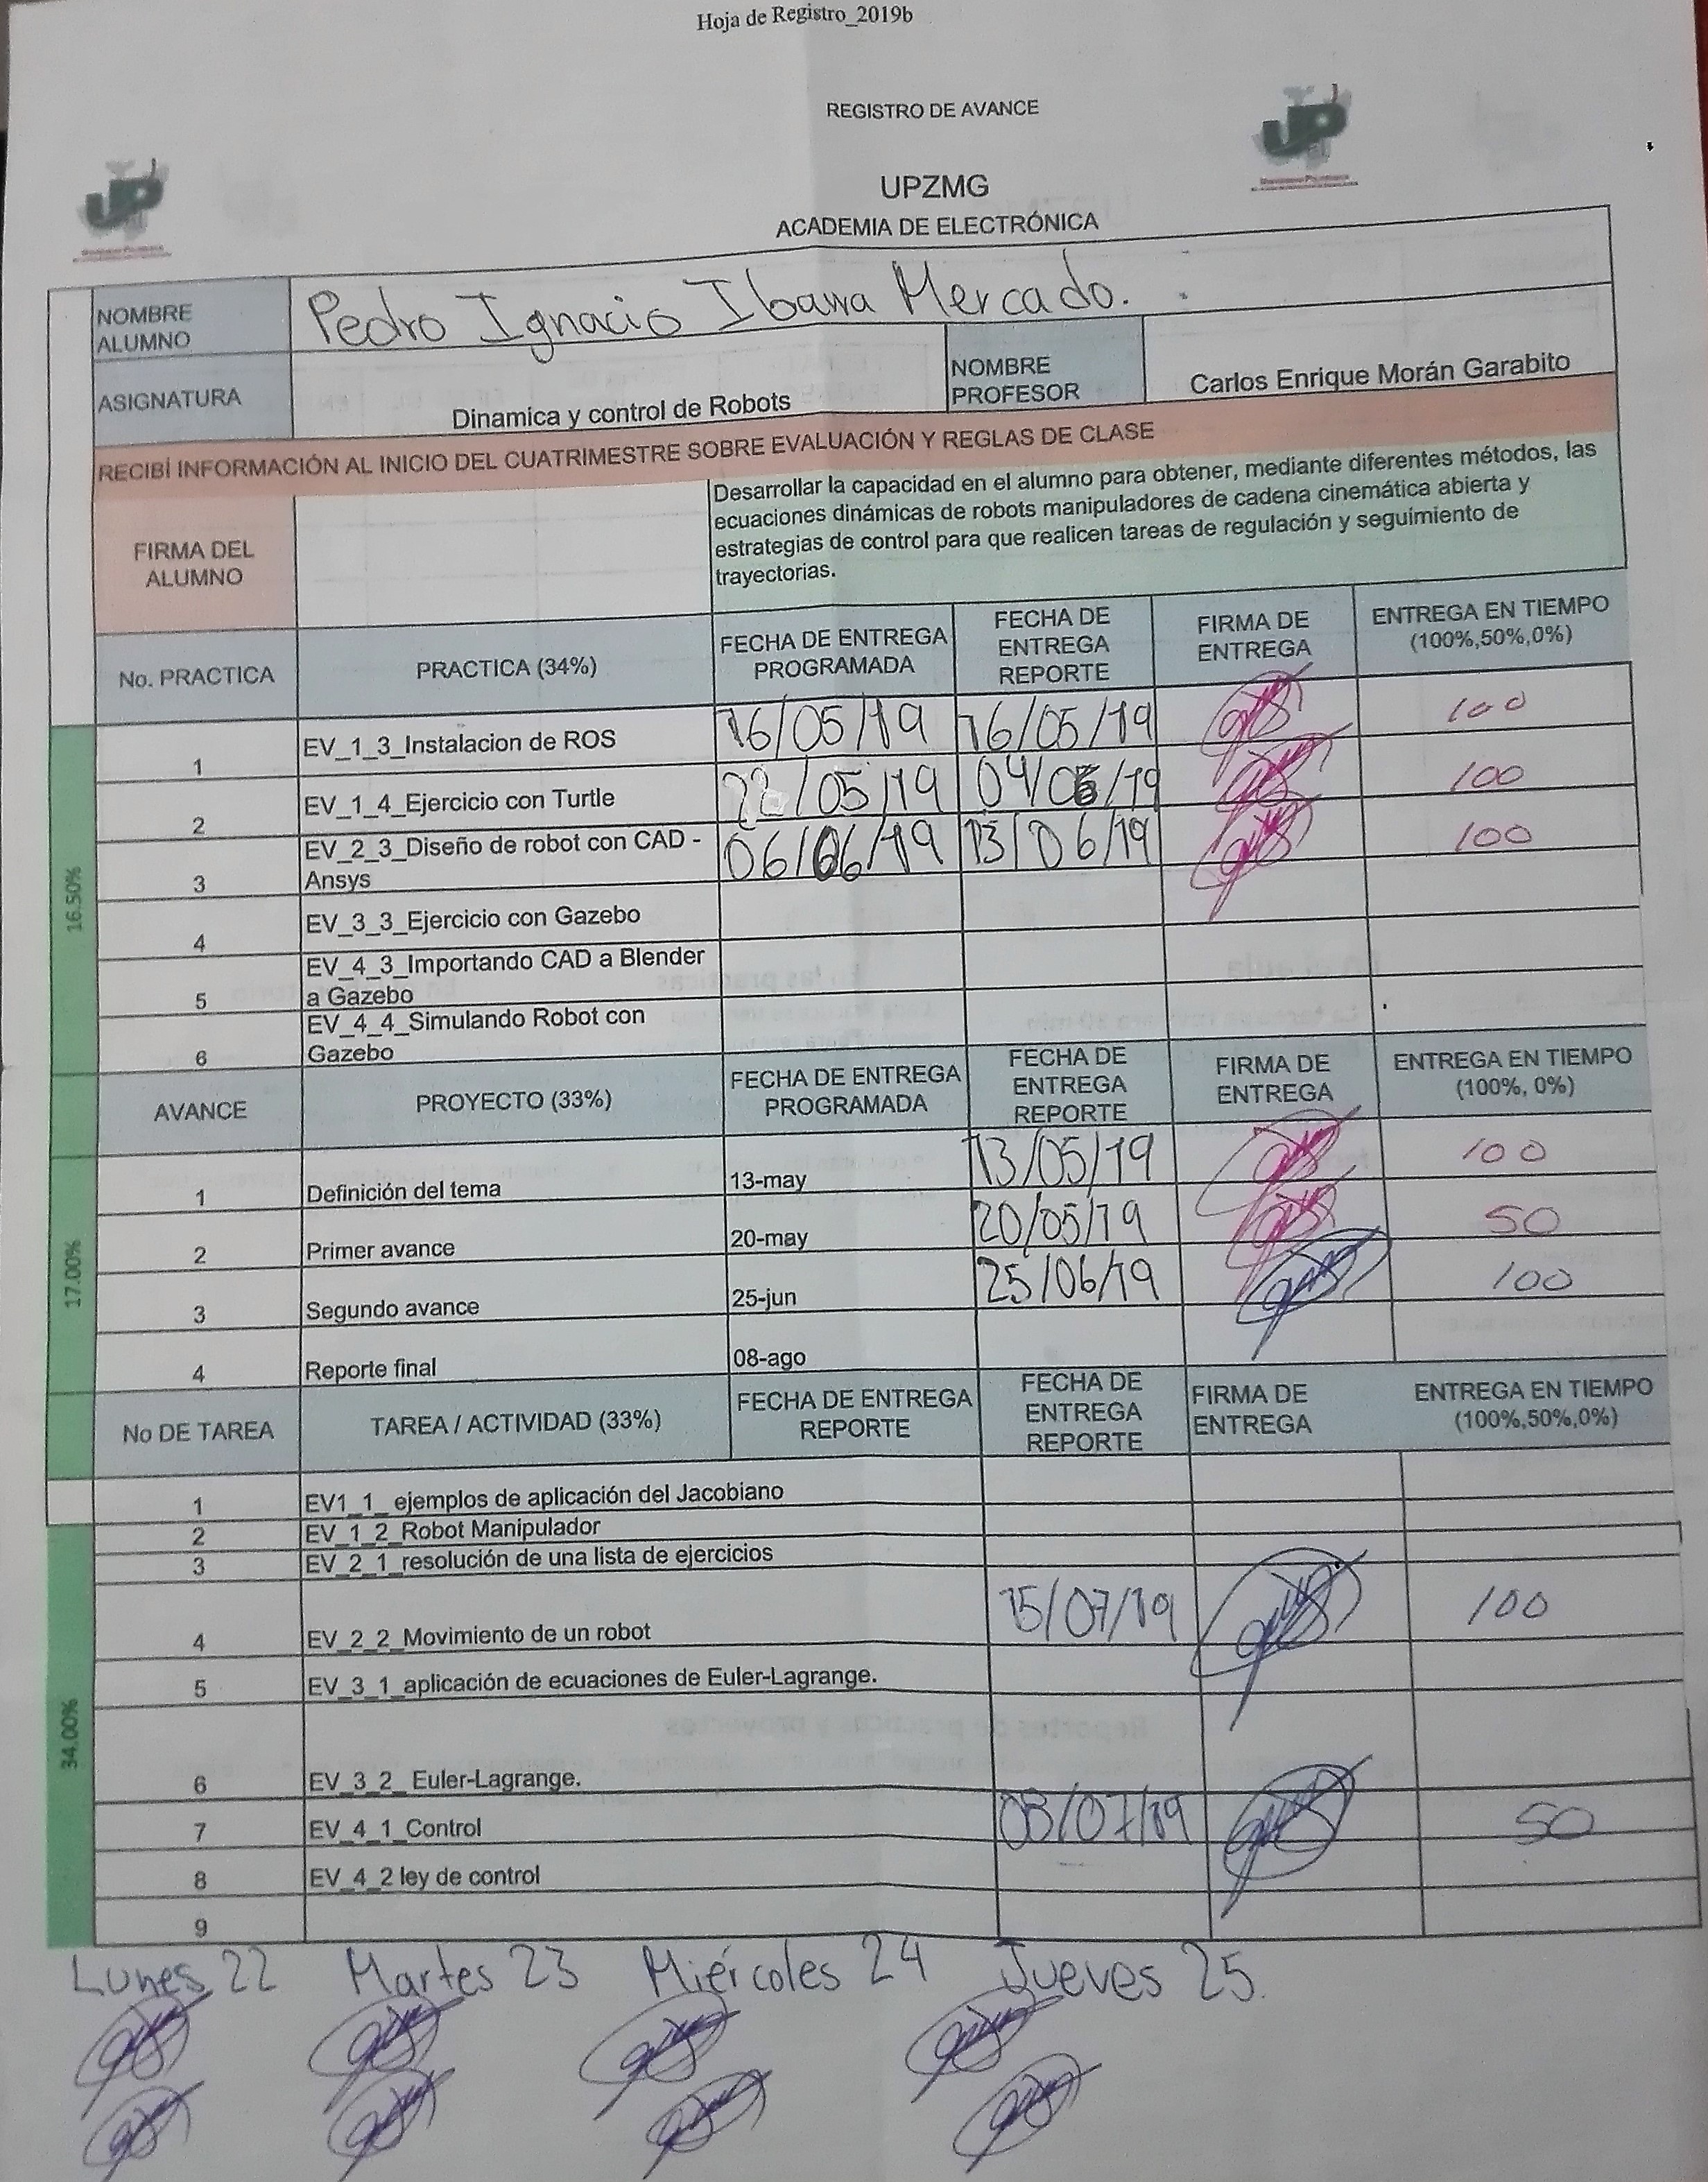 Hoja de Registro_2019b
REGISTRO DE AVANCE
UPZMG
ACADEMIA DE ELECTRÓNICA
UP
UP
NOMBRE ALUMNO Pedro Ignacio Ibarra Mercado.
ASIGNATURA Dinamica y control de Robots NOMBRE PROFESOR Carlos Enrique Morán Garabito
RECIBÍ INFORMACIÓN AL INICIO DEL CUATRIMESTRE SOBRE EVALUACIÓN Y REGLAS DE CLASE
FIRMA DEL ALUMNO
Desarrollar la capacidad en el alumno para obtener, mediante diferentes métodos, las
ecuaciones dinámicas de robots manipuladores de cadena cinemática abierta y
estrategias de control para que realicen tareas de regulación y seguimiento de
trayectorias.
No. PRACTICA PRACTICA (34%) FECHA DE ENTREGA PROGRAMADA FECHA DE ENTREGA REPORTE FIRMA DE ENTREGA ENTREGA EN TIEMPO (100%,50%,0%)
16.50%
1 EV_1_3_Instalacion de ROS 16/05/19 16/05/19 100
2 EV_1_4_Ejercicio con Turtle 22/05/19 04/06/19 100
3 EV_2_3_Diseño de robot con CAD - Ansys 06/06/19 13/06/19 100
4 EV_3_3_Ejercicio con Gazebo
5 EV_4_3_Importando CAD a Blender a Gazebo
6 EV_4_4_Simulando Robot con Gazebo
AVANCE PROYECTO (33%) FECHA DE ENTREGA PROGRAMADA FECHA DE ENTREGA REPORTE FIRMA DE ENTREGA ENTREGA EN TIEMPO (100%, 0%)
17.00%
1 Definición del tema 13-may 13/05/19 100
2 Primer avance 20-may 20/05/19 50
3 Segundo avance 25-jun 25/06/19 100
4 Reporte final 08-ago
No DE TAREA TAREA / ACTIVIDAD (33%) FECHA DE ENTREGA REPORTE FECHA DE ENTREGA REPORTE FIRMA DE ENTREGA ENTREGA EN TIEMPO (100%,50%,0%)
34.00%
1 EV1_1_ ejemplos de aplicación del Jacobiano
2 EV_1_2_Robot Manipulador
3 EV_2_1_resolución de una lista de ejercicios
4 EV_2_2_Movimiento de un robot 15/07/19 100
5 EV_3_1_aplicación de ecuaciones de Euler-Lagrange.
6 EV_3_2_ Euler-Lagrange.
7 EV_4_1_Control 03/07/19 50
8 EV_4_2 ley de control
9
Lunes 22 Martes 23 Miércoles 24 Jueves 25.